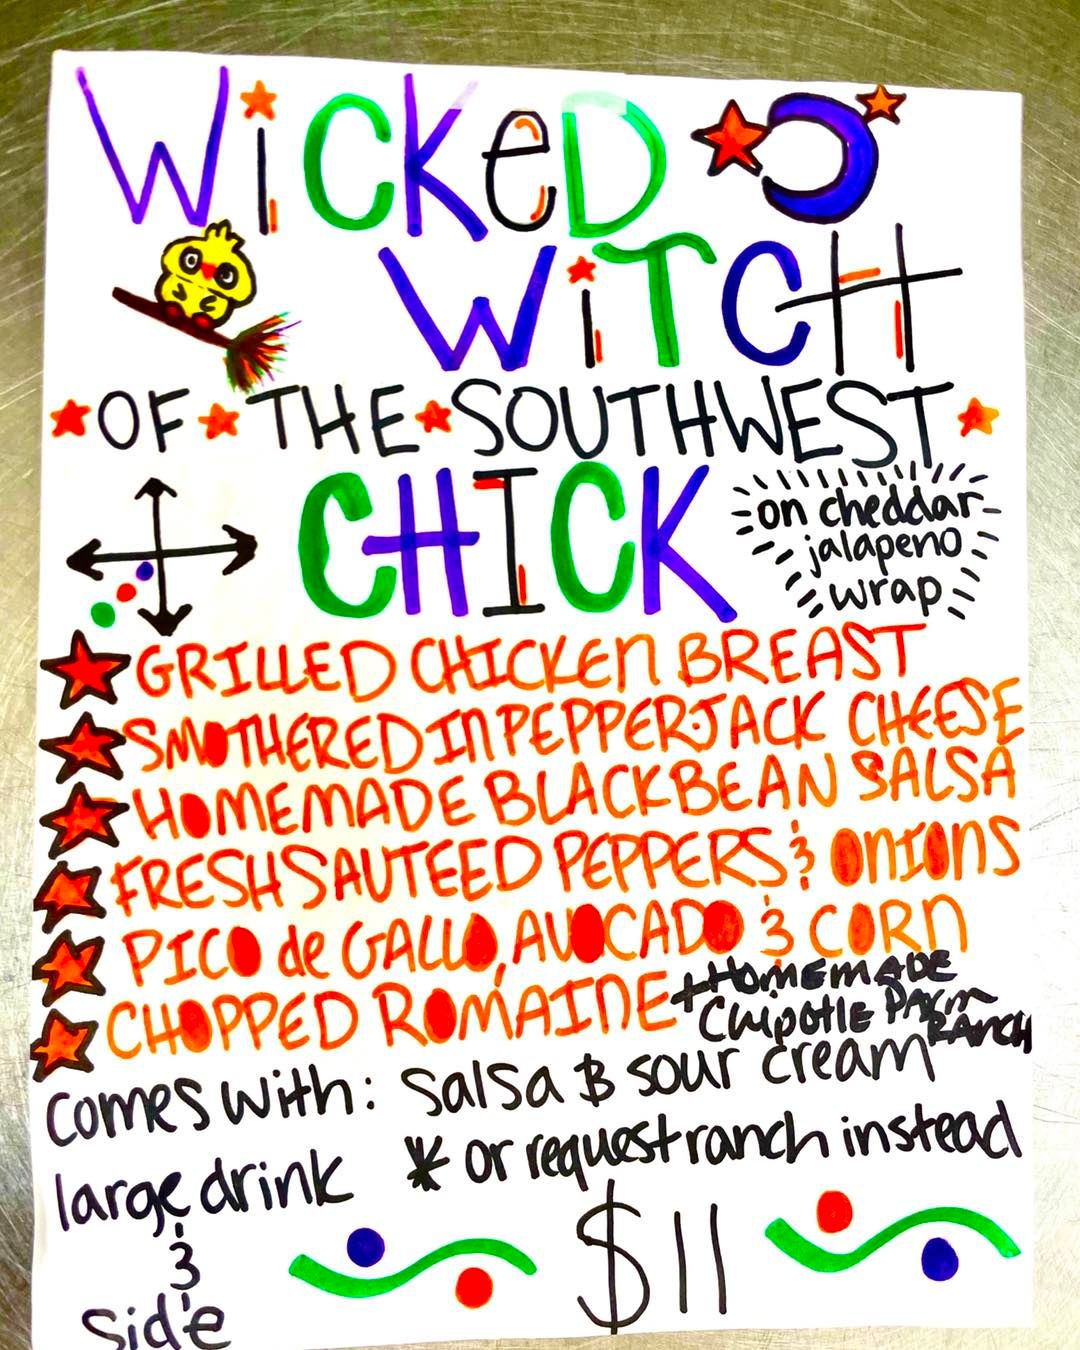 WiCKeD
WiTCH
OF THE SOUTHWEST
CHICK
on cheddar-
jalapeno
wrap
GRILLED CHICKEN BREAST
SMOTHERED IN PEPPERJACK CHEESE
HOMEMADE BLACKBEAN SALSA
FRESH SAUTEED PEPPERS & ONIONS
PICO de GALLO, AVOCADO & CORN
CHOPPED ROMAINE + HOMEMADE
Chipotle PARM
RANCH
comes with: salsa & sour cream
large drink * or request ranch instead
&
side
$11